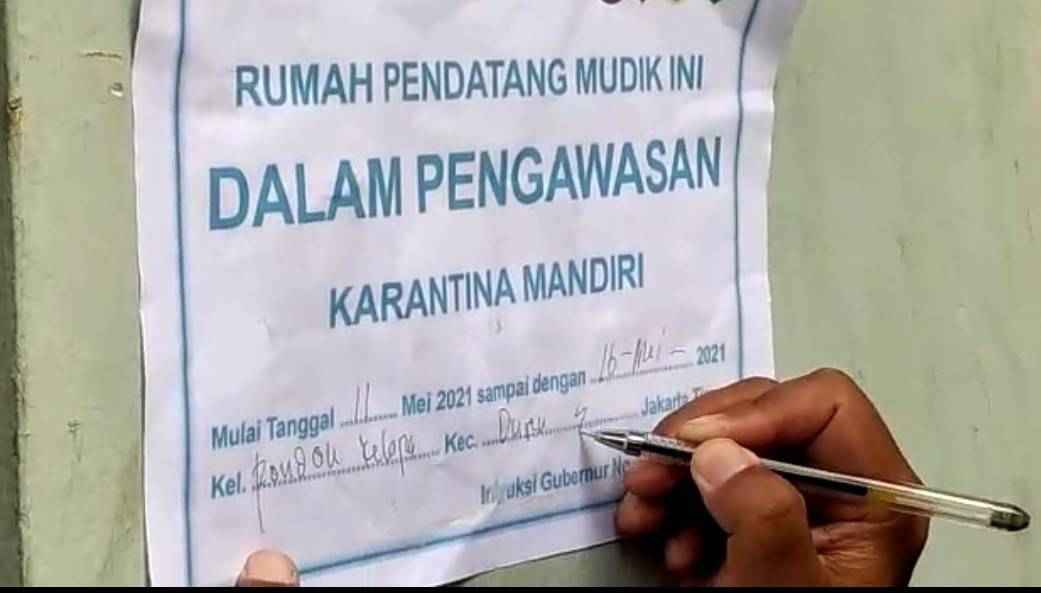 RUMAH PENDATANG MUDIK INI
DALAM PENGAWASAN
KARANTINA MANDIRI
Mulai Tanggal 11 Mei 2021 sampai dengan 16-Mei- 2021
Kel. Pondok Kelapa Kec. Duren Jakarta
Instruksi Gubernur No